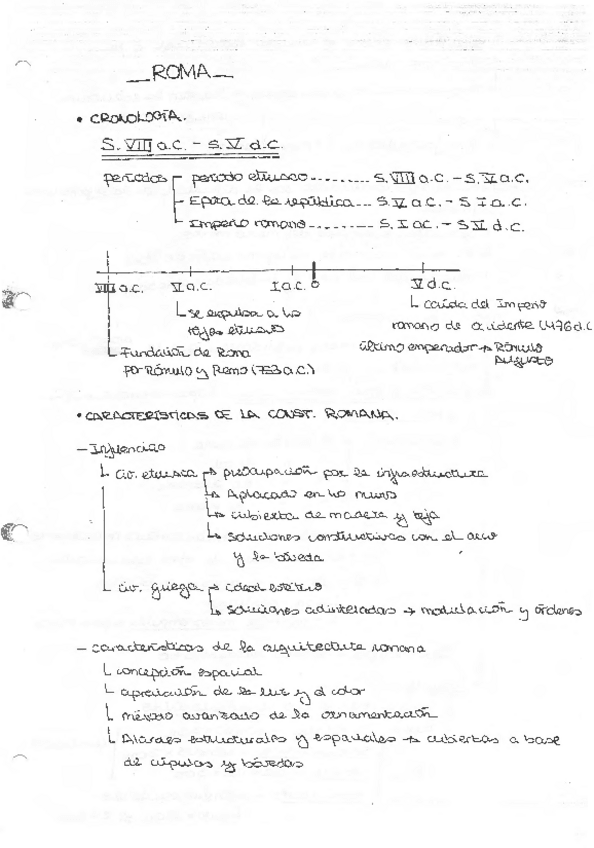 ROMA
• CRONOLOGÍA.
S. VIII a.C. - S. V d.C.
periodos periodo etrusco ......... S. VIII a.C. - S. V a.C.
Época de la república ... S. V a.C. - S I a.C.
Imperio romano ........ S. I a.C. - S V d.C.
VIII a.C. V a.C. I a.C. 0 V d.C.
se expulsa a los
reyes etruscos
caída del Imperio
romano de occidente (476 d.C
último emperador → Rómulo
Augusto
Fundación de Roma
por Rómulo y Remo (753 a.C.)
• CARACTERÍSTICAS DE LA CONST. ROMANA.
- Influencias
civ. etrusca → preocupación por la infraestructura
→ Aplacado en los muros
→ cubierta de madera y teja
→ soluciones constructivas con el arco
y la bóveda
civ. griega → ideal estético
→ soluciones adinteladas → modulación y órdenes
- características de la arquitectura romana
concepción espacial
apreciación de la luz y el color
método avanzado de la ornamentación
Alardes estructurales y espaciales → cubiertas a base
de cúpulas y bóvedas